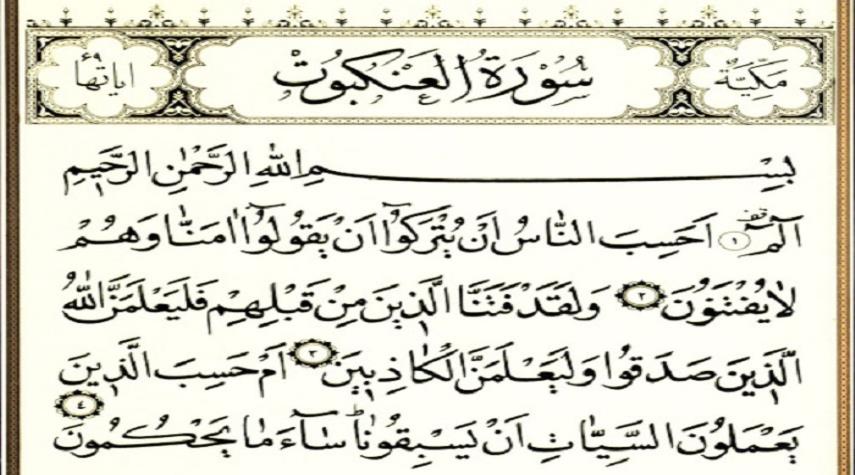 مَكِّيَّةٌ سُورَةُ الْعَنْكَبُوتِ اٰيَاتُهَا ٦٩
بِسْمِ اللّٰهِ الرَّحْمٰنِ الرَّحِيمِ
الٓمٓ ۚ ﴿١﴾ اَحَسِبَ النَّاسُ اَنْ يُتْرَكُٓوا اَنْ يَقُولُٓوا اٰمَنَّا وَهُمْ
لَا يُفْتَنُونَ ﴿٢﴾ وَلَقَدْ فَتَنَّا الَّذِينَ مِنْ قَبْلِهِمْ فَلَيَعْلَمَنَّ اللّٰهُ
الَّذِينَ صَدَقُوا وَلَيَعْلَمَنَّ الْكَاذِبِينَ ﴿٣﴾ اَمْ حَسِبَ الَّذِينَ
يَعْمَلُونَ السَّيِّـَٔاتِ اَنْ يَسْبِقُونَا سَٓاءَ مَا يَحْكُمُونَ ﴿٤﴾